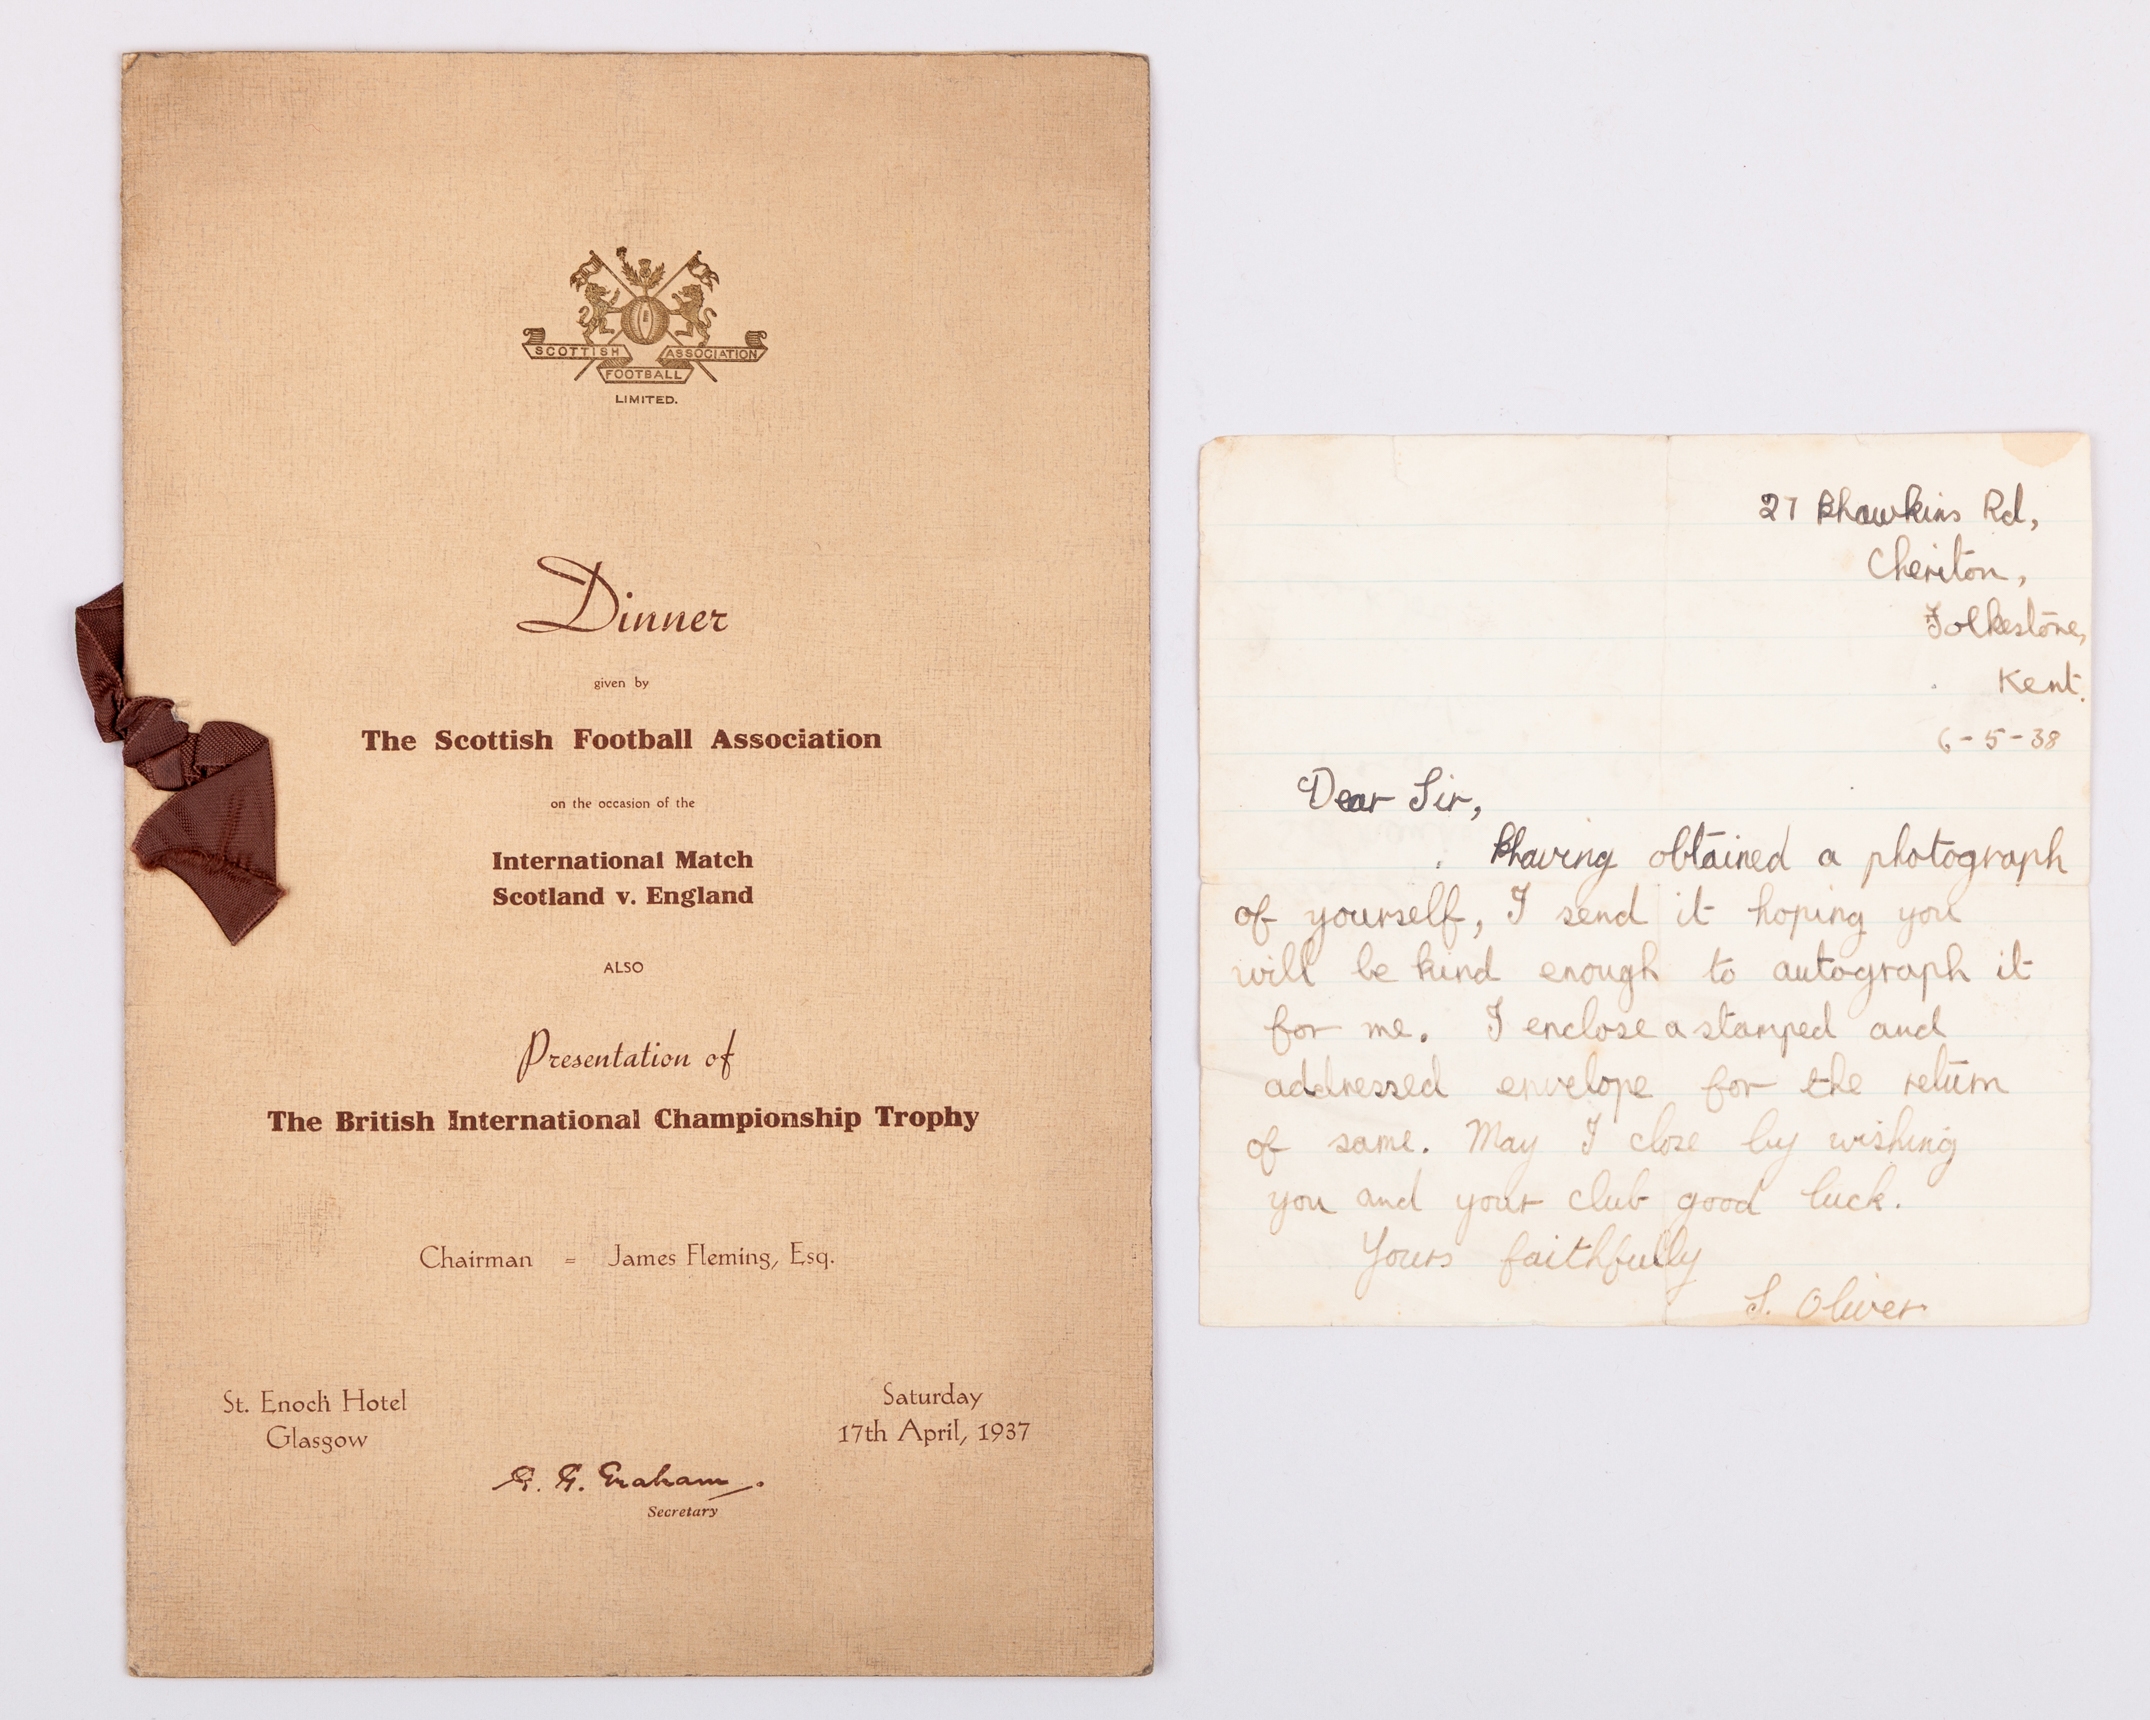 SCOTTISH ASSOCIATION
FOOTBALL
LIMITED.
Dinner
given by
The Scottish Football Association
on the occasion of the
International Match
Scotland v. England
ALSO
Presentation of
The British International Championship Trophy
Chairman = James Fleming, Esq.
St. Enoch Hotel
Glasgow
Saturday
17th April, 1937
G. G. Graham.
Secretary
27 Hawkins Rd,
Cheriton,
Folkestone,
Kent.
6-5-38
Dear Sir,
Having obtained a photograph
of yourself, I send it hoping you
will be kind enough to autograph it
for me. I enclose a stamped and
addressed envelope for the return
of same. May I close by wishing
you and your club good luck.
Yours faithfully
S. Oliver